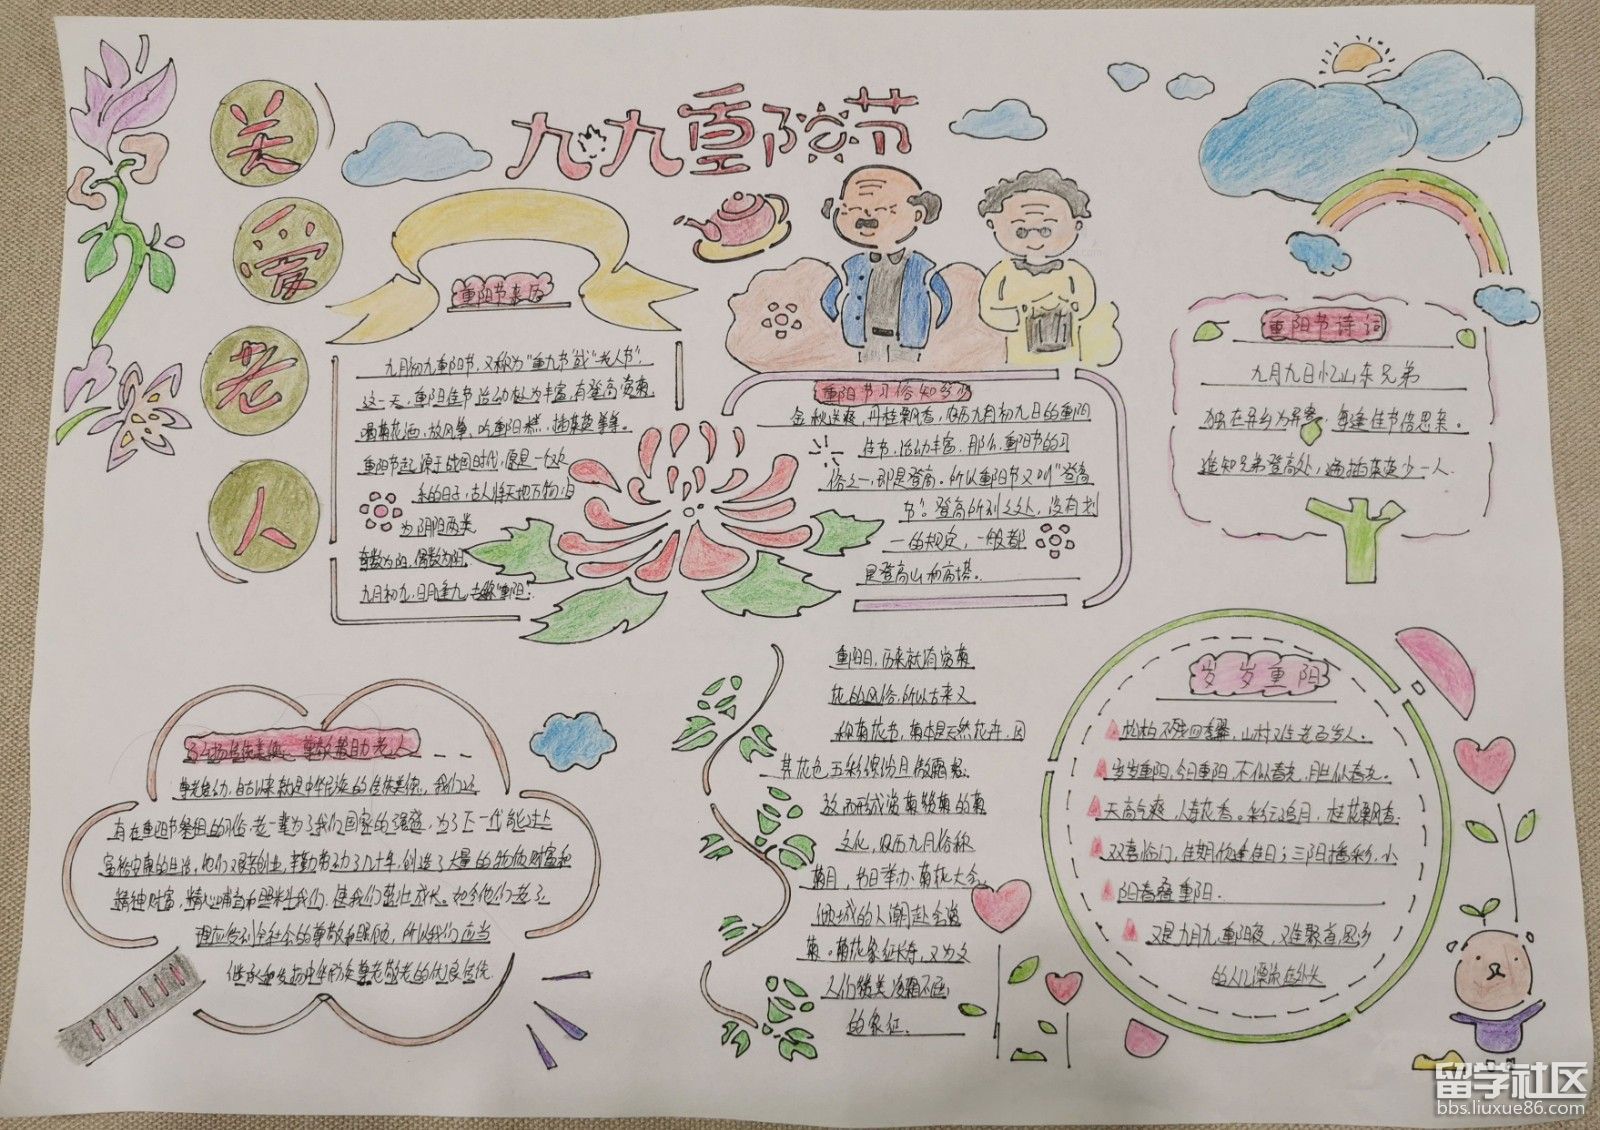 九九重阳节
关
爱
老
人
重阳节来历
九月初九重阳节，又称为“重九节”或“老人节”。
这一天，重阳佳节活动极为丰富，有登高赏菊，
喝菊花酒，放风筝，吃重阳糕，插茱萸等等。
重阳节起源于战国时代，原是一欢
乐的日子，古人将天地万物归
为阴阳两类
奇数为阳，偶数为阴。
九月初九，日月逢九，古称“重阳。
重阳节习俗知多少
金秋送爽，丹桂飘香，农历九月初九日的重阳
佳节，活动丰富，那么，重阳节的习
俗之一，即是登高。所以重阳节又叫“登高
节”。登高所到之处，没有划
一的规定，一般都
是登高山和高塔。
重阳节诗词
九月九日忆山东兄弟
独在异乡为异客，每逢佳节倍思亲。
遥知兄弟登高处，遍插茱萸少一人。
尊敬帮助老人
尊老爱幼，自古以来就是中华民族的传统美德，我们还
有在重阳节祭祖的习俗，老一辈为了我们国家的强盛，为了下一代能过上
富裕安康的生活，他们艰苦创业，辛勤劳动了几十年，创造了大量的物质财富和
精神财富，精心哺育和照料我们，使我们茁壮成长。如今他们老了
理应受到全社会的尊敬和照顾，所以我们应当
继承和发扬中华民族尊老敬老的优良传统。
重阳日，历来就有赏菊
花的风俗，所以古来又
称菊花节，菊本是天然花卉，因
其花色五彩缤纷且傲霜怒
放而形成赏菊颂菊的菊
文化，农历九月俗称
菊月，节日举办菊花大会
倾城的人潮赴会赏
菊。菊花象征长寿，又为文
人们赞美凌霜不屈
的象征。
岁岁重阳
松柏不残四季翠，山村难老百岁人。
岁岁重阳，今日重阳，不似春光，胜似春光。
天高气爽，人寿花香。彩云追月，桂花飘香
双喜临门，佳期恰逢佳日；三阳播彩，小
阳春叠重阳。
又是九月九，重阳夜，难聚首，思乡
的人儿漂流在外头
留学社区
bbs.liuxue86.com